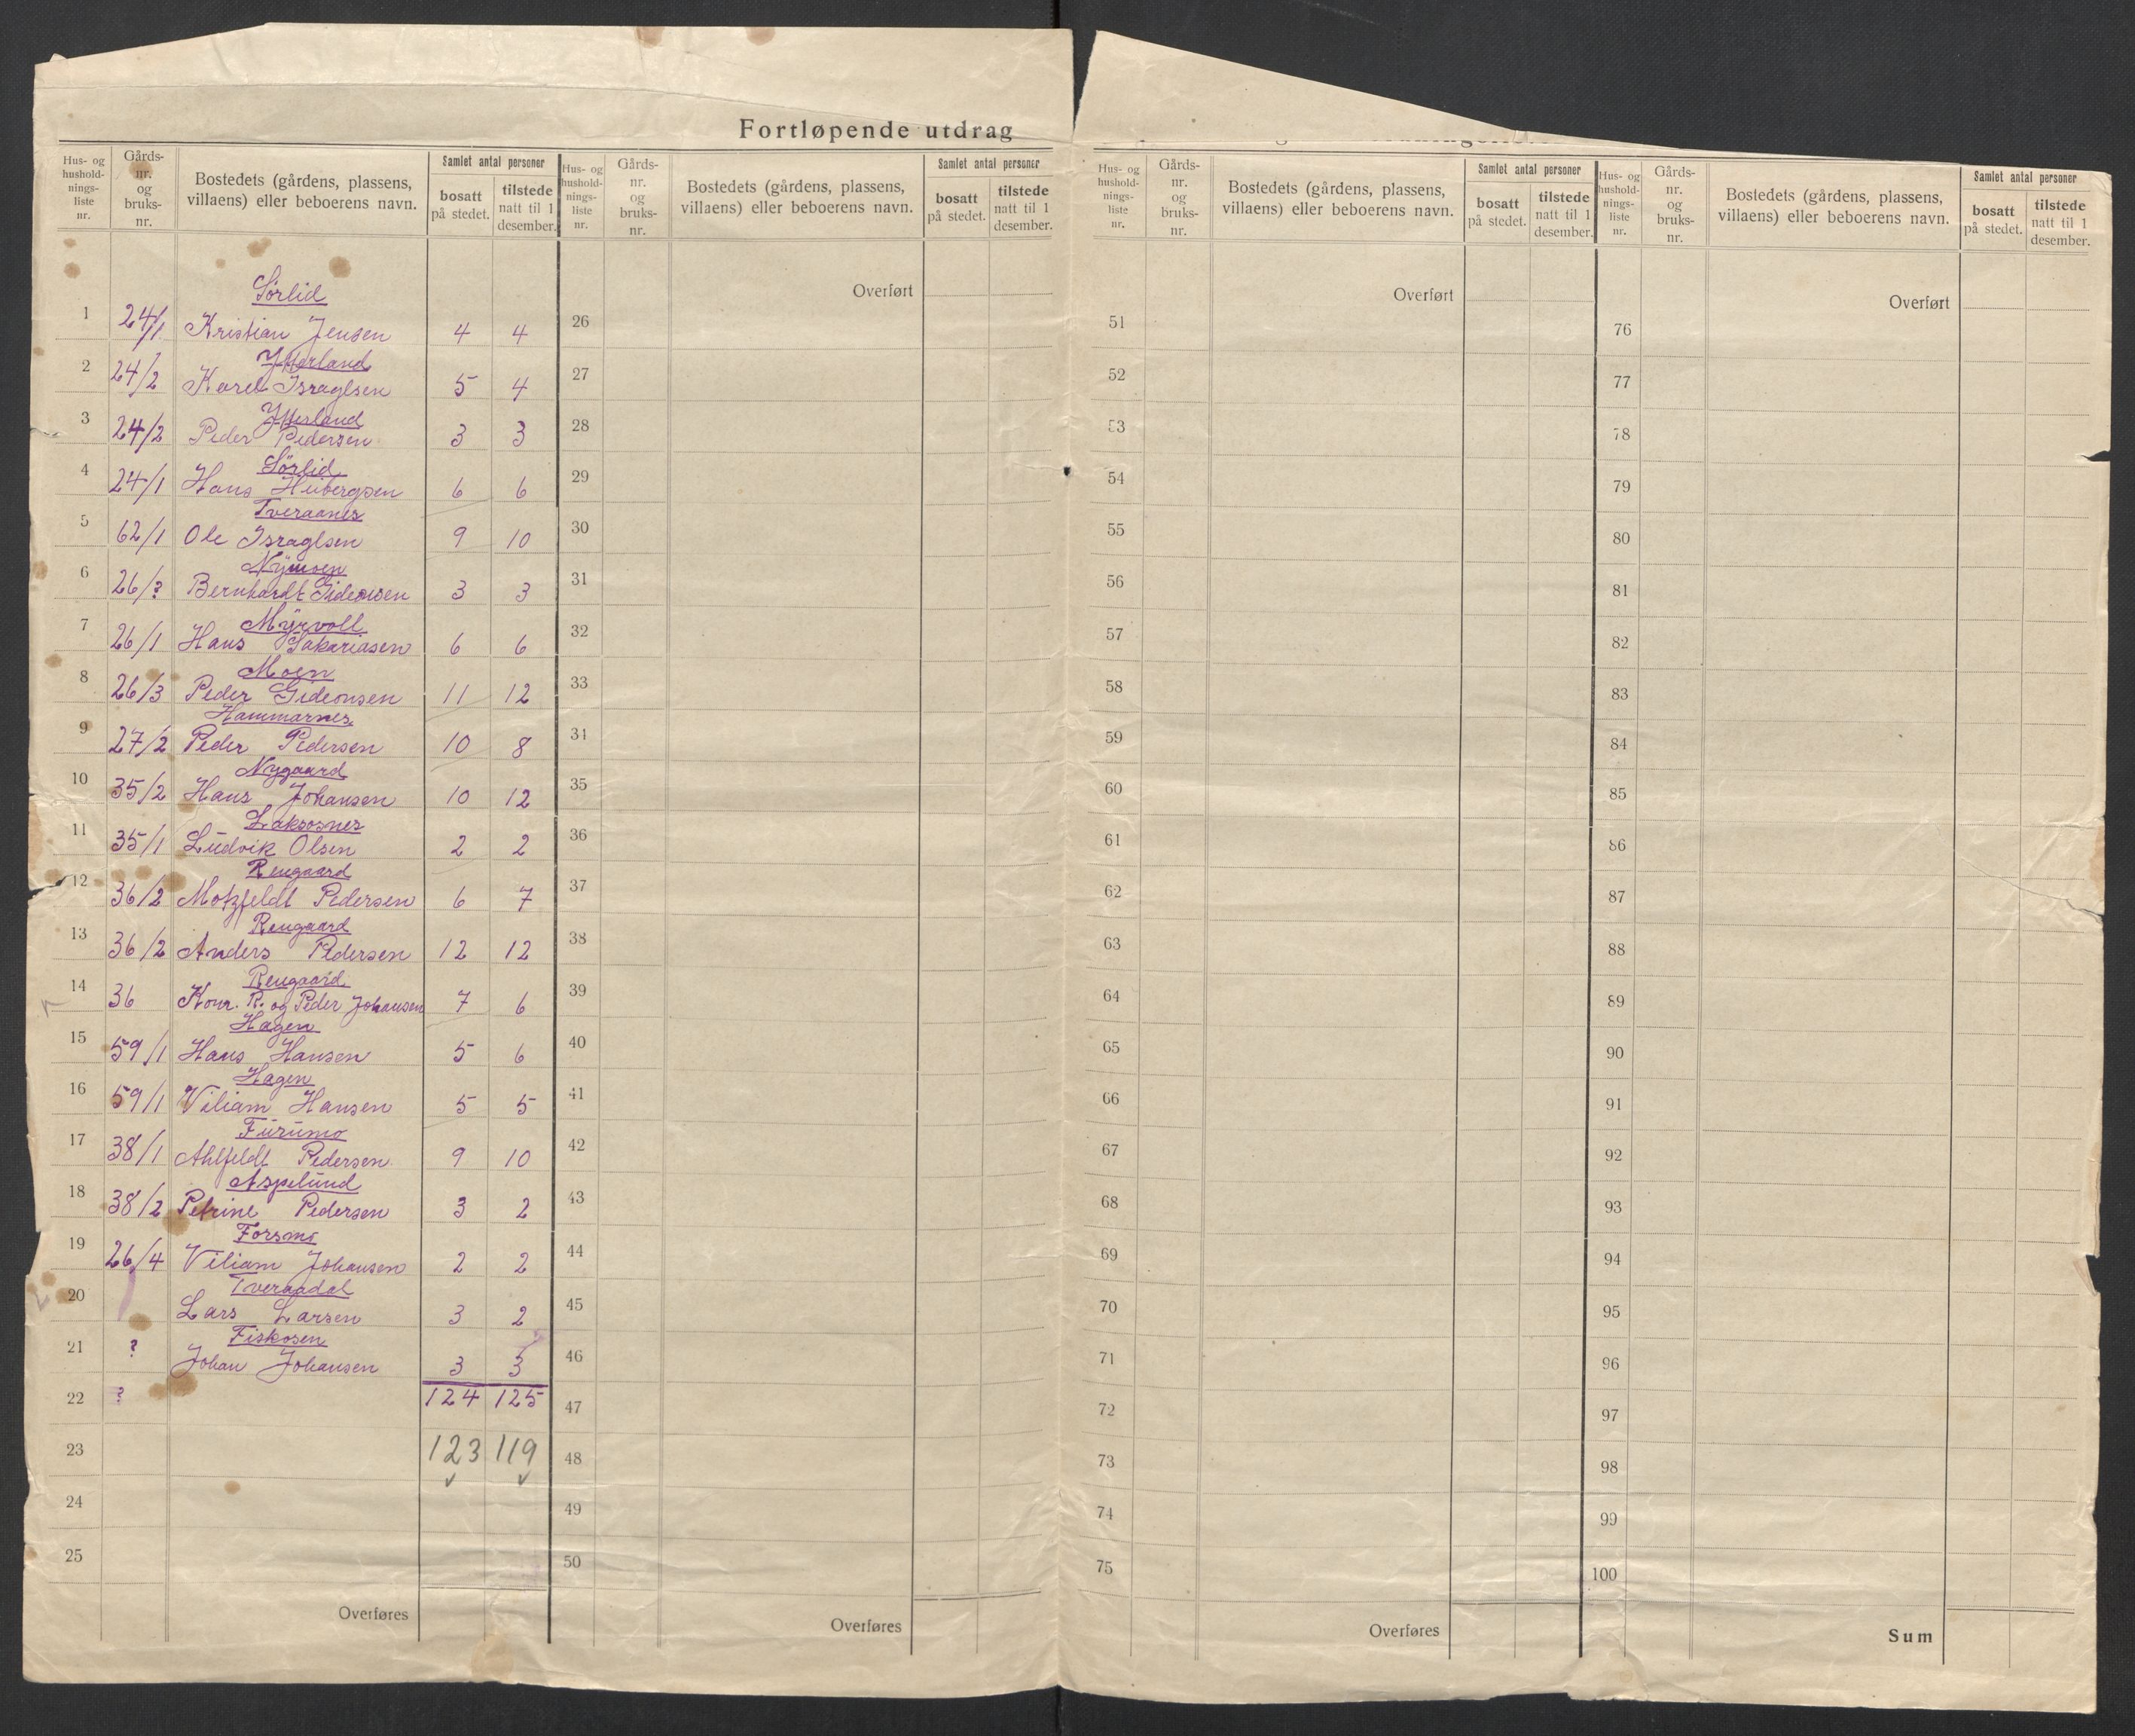 Fortløpende utdrag
Hus- og husholdningsliste nr. | Gårdsnr. og bruksnr. | Bostedets (gårdens, plassens, villaens) eller beboerens navn. | Samlet antal personer | bosatt på stedet. | tilstede natt til 1 desember.
Sørlid
1 24/1 Kristian Jensen 4 4
Ytterland
2 24/2 Karel Isragelsen 5 4
Ytterland
3 24/2 Peder Pedersen 3 3
Sørlid
4 24/1 Hans Heibergsen 6 6
Tveraanes
5 62/1 Ole Isragelsen 9 10
Nymoen
6 26/? Bernhardt Gideonsen 3 3
Myrvoll
7 26/1 Hans Sakariasen 6 6
Moen
8 26/3 Peder Gideonsen 11 12
Hammarnes
9 27/2 Peder Pedersen 10 8
Nygaard
10 35/2 Hans Johansen 10 12
Laksosnes
11 35/1 Ludvik Olsen 2 2
Reugaard
12 36/2 Motzfeldt Pedersen 6 7
Reugaard
13 36/2 Anders Pedersen 12 12
Reugaard
14 36 Konr. R. og Peder Johansen 7 6
Hagen
15 59/1 Hans Hansen 5 6
Hagen
16 59/1 Viliam Hansen 5 5
Furumo
17 38/1 Ahlfeldt Pedersen 9 10
Aspelund
18 38/2 Petrine Pedersen 3 2
Forsmo
19 26/4 Viliam Johansen 2 2
Tveraadal
20 Lars Larsen 3 2
Fiskosen
21 ? Johan Johansen 3 3
22 ? 124 125
23 123 119
24
25
Overføres
Hus- og husholdningsliste nr. | Gårdsnr. og bruksnr. | Bostedets (gårdens, plassens, villaens) eller beboerens navn. | Samlet antal personer | bosatt på stedet. | tilstede natt til 1 desember.
Overført
26
27
28
29
30
31
32
33
34
35
36
37
38
39
40
41
42
43
44
45
46
47
48
49
50
Overføres
Hus- og husholdningsliste nr. | Gårdsnr. og bruksnr. | Bostedets (gårdens, plassens, villaens) eller beboerens navn. | Samlet antal personer | bosatt på stedet. | tilstede natt til 1 desember.
Overført
51
52
53
54
55
56
57
58
59
60
61
62
63
64
65
66
67
68
69
70
71
72
73
74
75
Overføres
Hus- og husholdningsliste nr. | Gårdsnr. og bruksnr. | Bostedets (gårdens, plassens, villaens) eller beboerens navn. | Samlet antal personer | bosatt på stedet. | tilstede natt til 1 desember.
Overført
76
77
78
79
80
81
82
83
84
85
86
87
88
89
90
91
92
93
94
95
96
97
98
99
100
Sum